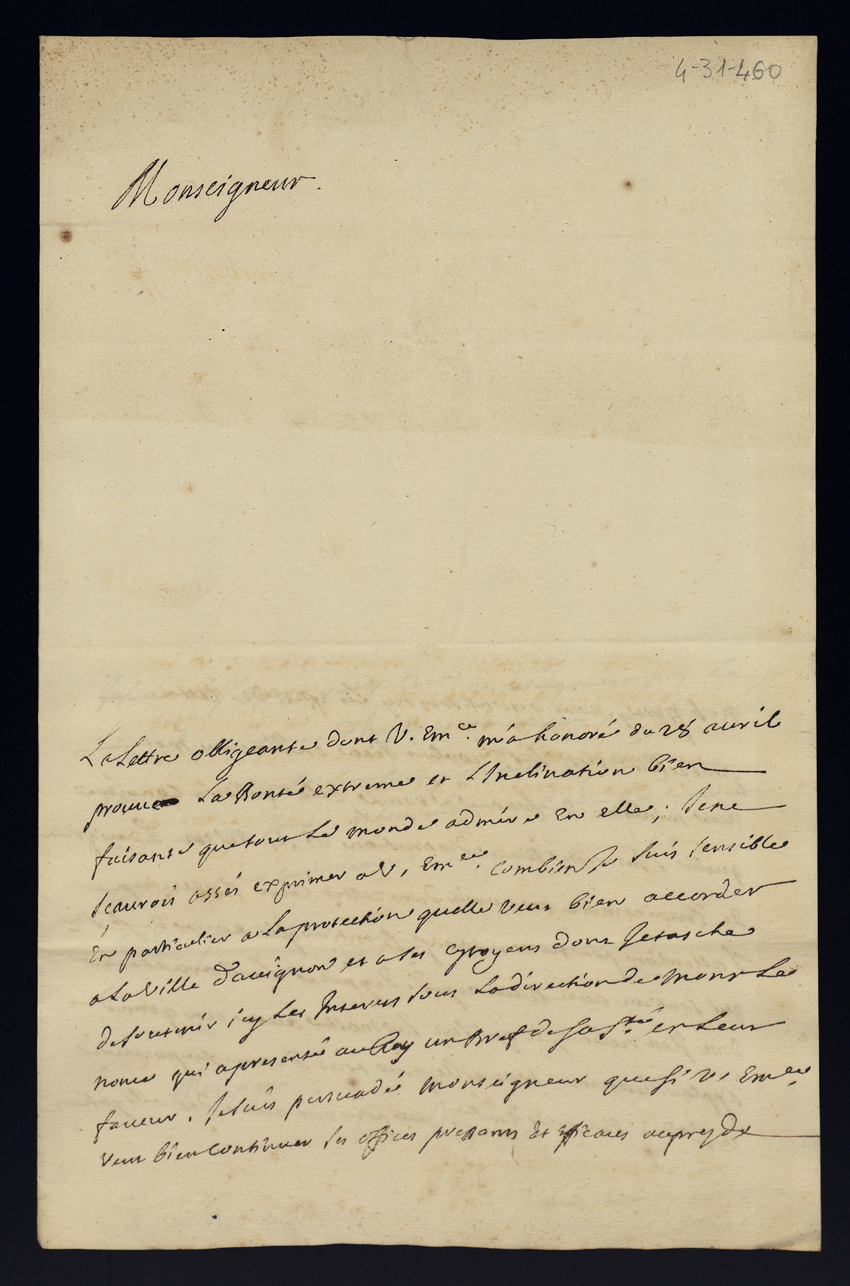 4-31-460
Monseigneur.
La Lettre obligeante dont V. Em.ce m'a honoré du 28 auril
prouue La Bonté extreme et L'Inclination bien
faisante que tout Le monde admire En elle; Je ne
scaurois assés exprimer a V. Em.ce combien Je suis sensible
En particulier a La protection quelle veut bien accorder
a La Ville d'auignon et a ses Cytoyens dont Je tasche
de soutenir icy Les Interets sous La direction de Monsr Le
nonce qui a presenté au Roy un Bref de sa S.teé en Leur
faueur. Je suis persuadé Monseigneur que si V. Em.ce
veut bien continuer ses offices pressants Et efficaces aupres de